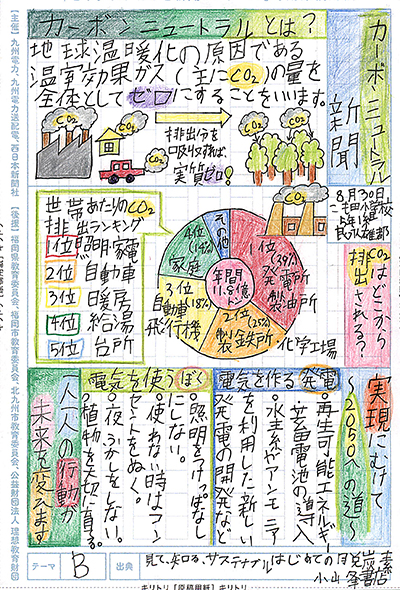 カーボンニュートラル
新聞
カーボンニュートラルとは?
地球温暖化の原因である
温室効果ガス(主にCO₂)の量を
全体としてゼロにすることをいいます。
CO₂
CO₂
CO₂
排出分を
吸収すれば、
実質ゼロ!
CO₂
CO₂
CO₂
8月30日
CO₂はどこから
排出される?
CO₂
CO₂
1位(39%)
発電所
製油所
2位(25%)
製鉄所・化学工場
3位(18%)
自動車
飛行機
4位(14%)
家庭
その他
年間
世帯あたりのCO₂
排出ランキング
1位照明・家電
2位自動車
3位暖房
4位給湯
5位台所
実現にむけて
〜2050への道〜
電気を作る発電
・再生可能エネルギー
・蓄電池の導入
・水素やアンモニア
を利用した新しい
発電の開発など
電気を使うぼく
・照明をつけっぱなし
にしない。
・使わない時はコン
セントをぬく。
・夜ふかしをしない。
・植物を大切に育てる。
一人一人の行動が
未来を変えます
テーマ
B
出典
見て、知る、サステナブル はじめての脱炭素
小峰書店
キリトリ【原稿用紙】キリトリ
【主催】九州電力、九州電力送配電、西日本新聞社
【後援】福岡県教育委員会、福岡市教育委員会、北九州市教育委員会、公益財団法人 理想教育財団